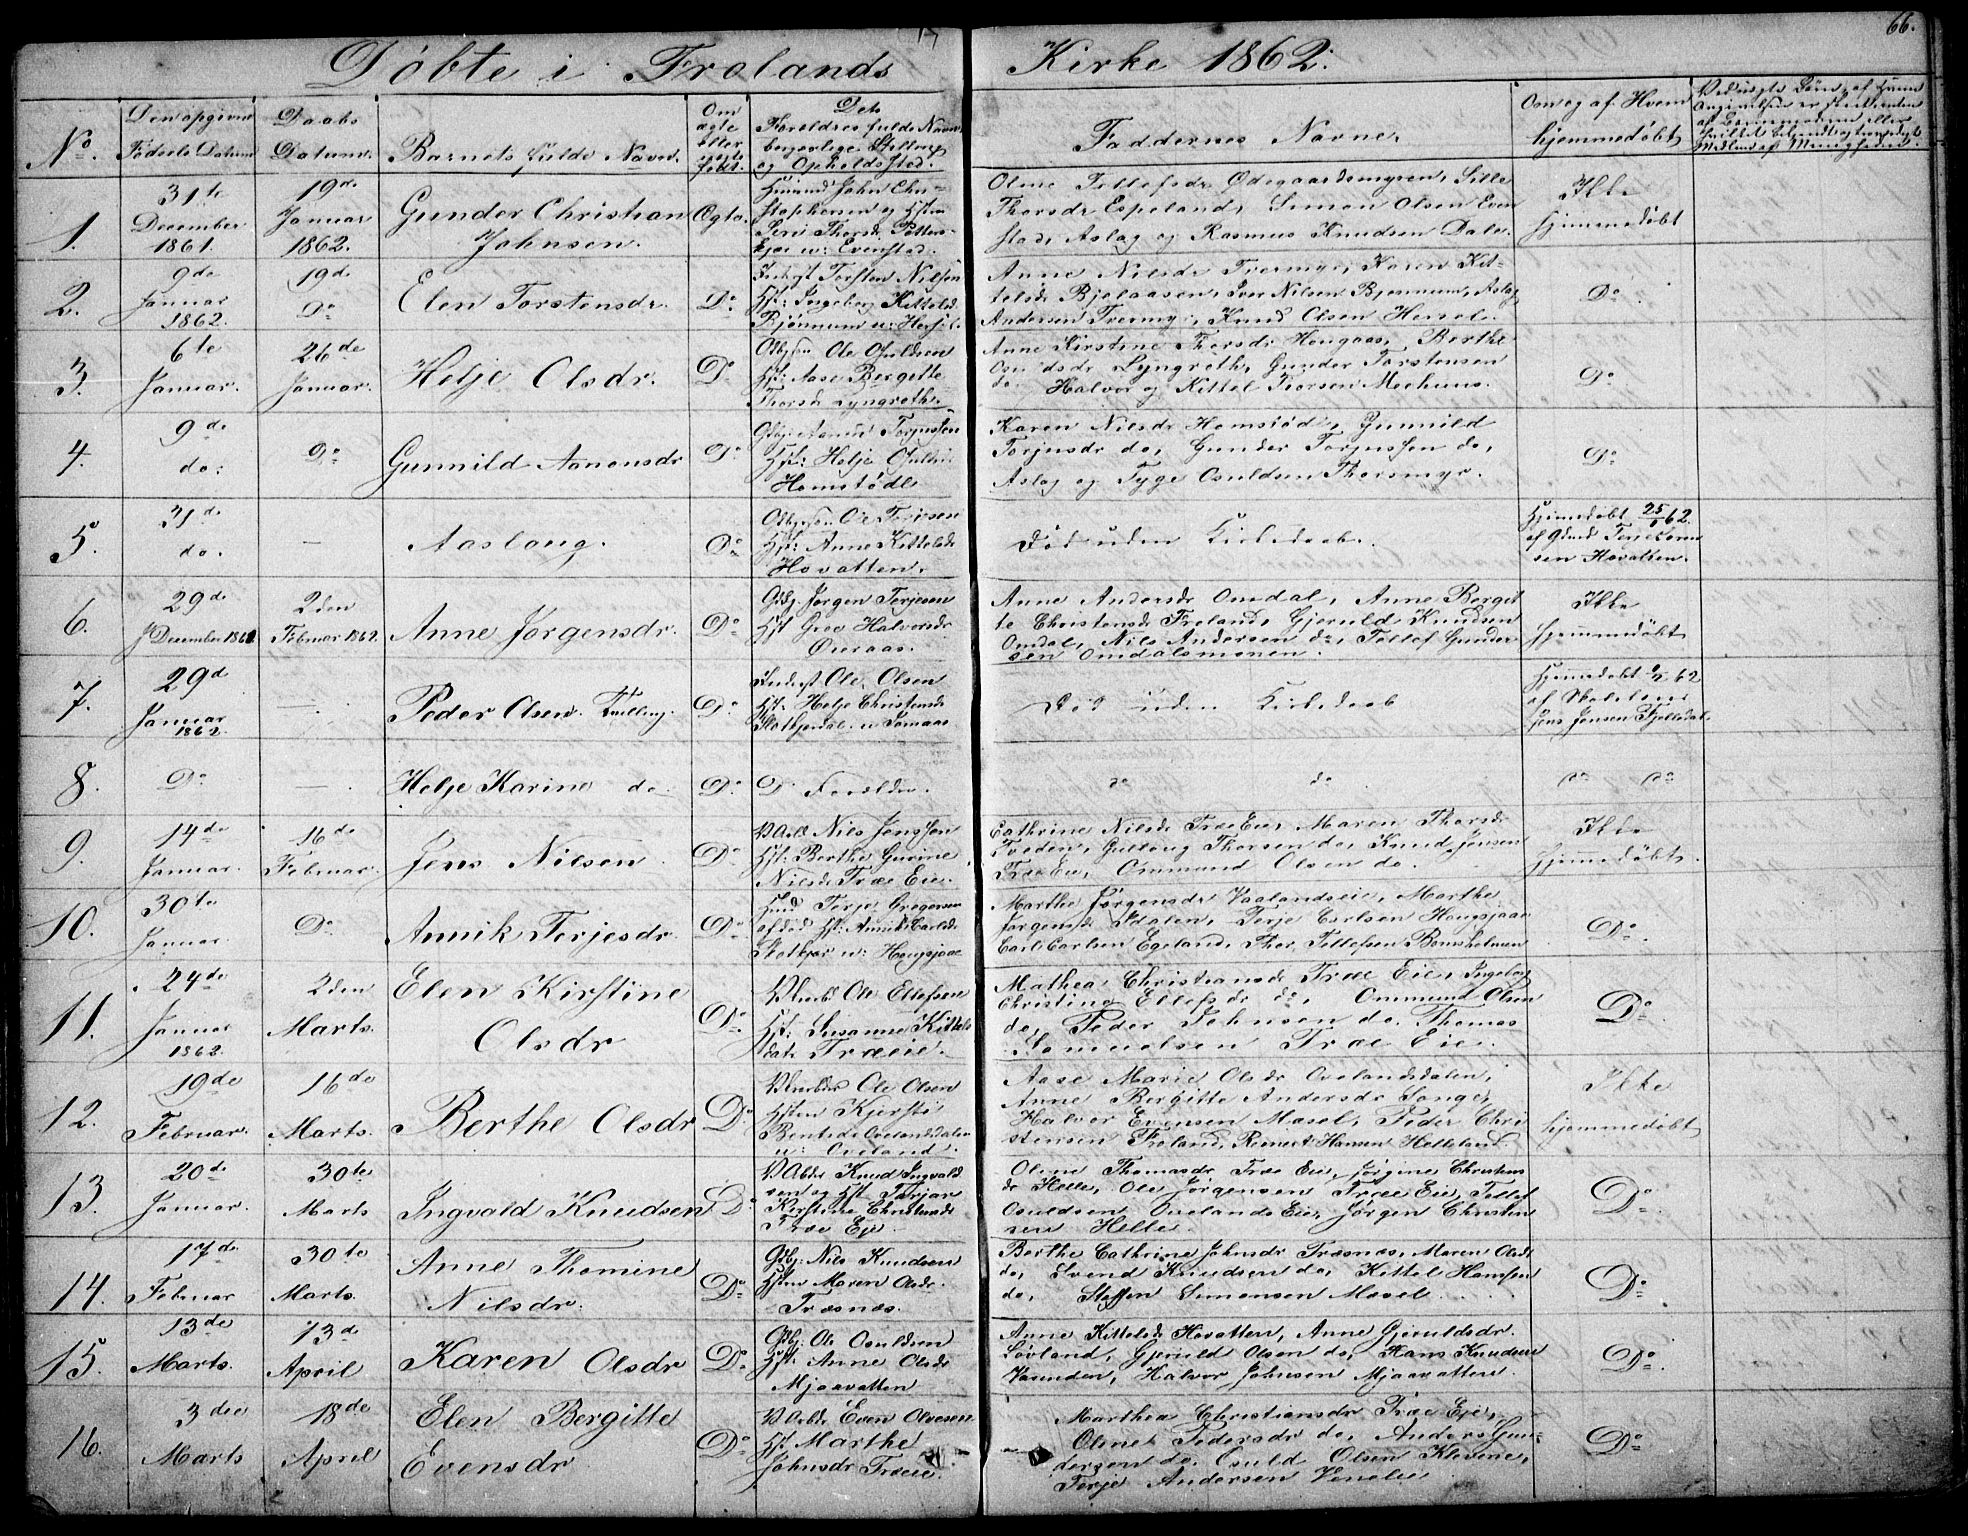 66.
Døbte i Frolands Kirke 1862.
No.
Den opgivne Fødsels Datum
Daabs Datum.
Barnets fulde Navn.
Om ægte eller uægte født.
Det
Forældres fulde Navn
borgerlige Stilling
og Opholds Sted.
Faddernes Navne.
Om og af Hvem
hjemmedøbt
1.
31te
December
1861.
19de
Januar
1862.
Gunder Christian
Johnsen.
Ægte.
John Chri-
stophersen og
Thorsdr
Evenstad.
Oline Tellefsdr Ødegaardsmyren, Sille
Thorsdr Espeland, Simon Olsen Even
stad, Aslag og Rasmus Knudsen Dale.
Ikke
hjemmedøbt
2.
9de
Januar
1862.
19de
Do
Elen Torstensdr.
Do
Torsten Nilsen
Hst: Ingeborg Kittelsd
Bjønnum u:
Anne Nilsdr Tvermyr, Karen Kit-
telsdr Bjelaasen, Iver Nilsen Bjønnum, Aslag
Andersen Tvermyr, Knud Olsen
Do
3.
6te
Januar.
26de
Januar.
Helje Olsdr.
Do
Ole Osuldsen
Hst: Aase Bergitte
Thorsdr Lyngroth.
Anne Kirstine Thorsdr Hougaas, Berthe
Lyngroth, Gunder Torstensen
do Halvor og Kittel Torsen Mechuus.
Do
4.
9de
do:
Do
Gunnild Aanonsdr
Do
Gdbj: Aanon Torjussen
Hst: Helje
Homstødle
Karen Nilsdr Homstødl, Gunnild
Torjusdr do, Gunder Torjussen do,
Aslag og Tyge Osuldsen Thorsmyr.
Do
5.
31d
do.
—
Aaslaug.
Do
Ole Terjesen
Hst: Anne Kittelsdr
Hovatten.
Død uden Kirkedaab.
Hjemmedøbt 25/1 62.
af Gdmd Terje
sen Hovatten.
6.
29de
December 1861
2den
Februar 1862.
Anne Jørgensdr.
Do
Gdbj. Jørgen Terjesen
Hst Groe Halvorsdr
Øvraas.
Anne Andersdr Omdal, Anne Bergit
te Christensdr Froland, Gjeruld Knudsen
Omdal, Nils Andersen do, Tellef Gunder
sen Omdalsmonen.
Ikke
hjemmedøbt
7.
29d
Januar
1862.
—
Peder Olsen. Tvilling.
Do
Ole Olsen
Hst: Helje Christensdr
Død uden Kirkedaab
Hjemmedøbt
af Skolelærer
Jens Jensen Fjelledal.
8.
Do
—
Helje Karine do
Do
Do Forældre.
do do
do do
9.
14de
Januar.
16de
Februar.
Jens Nilsen
Do
Nils Jenssen
Hst: Berthe Gurine
Nilsdr Træe Eie.
Cathrine Nilsdr Træe Eie, Maren Thorsdr
Tveden, Gulloug Thorsen do, Knud Jensen
Træ Eie, Ommund Olsen do.
Ikke
hjemmedøbt.
10.
30te
Januar.
Do
Annik Terjesdr.
Do
Terje Gregersen
Hst: Annik Carlsdr
u: Hougsjaae
Marthe Jørgensdr Vaalandseie, Marthe
Jørgensdr Idalen, Terje Carlsen Hougsjaae
Carl Carlsen Egeland, Thor Tellefsen Bomsholmen
Do
11.
24de
Januar
1862.
2den
Marts.
Elen Kirstine
Olsdr
Do
Ole Ellefsen
Hst: Susanne Kittels
datr Træeie.
Mathea Christiansdr Træe Eie, Ingeborg
Christine Ellefsdr do, Ommund Olsen
do, Peder Johnsen do, Thomas
Samuelsen Træe Eie.
Do
12.
19de
Februar.
16de
Marts.
Berthe Olsdr
Do
Ole Olsen
Hsten Kjersti
Bentsdr Ovelandsdalen
u: Oveland.
Aase Marie Olsdr Ovelandsdalen,
Anne Bergitte Andersdr Songe,
Halvor Evensen Masel, Peder Chri
stensen Froland, Reinert Hansen Helleland
Ikke
hjemmedøbt
13.
20de
Januar.
30te
Marts
Ingvald Knudsen
Do
Knud Ingvald
sen og Hst Torjan
Kirstine Christensdr
Træe Eje.
Oline Thomasdr Træe Eie, Jørgine Christens
dr Helle, Ole Jørgensen Træe Eie, Tellef
Osuldsen Ovelands Eie, Jørgen Christen
sen Helle.
Do
14.
17de
Februar
30te
Marts.
Anne Thomine
Nilsdr.
Do
Gdbj: Nils Knudsen
Hsten Maren Olsdr
Træsnæs.
Berthe Cathrine Johnsdr Træsnæs, Maren Olsdr
do, Svend Knudsen do, Kittel Hansen
do, Steffen Simonsen Masel.
Do
15.
13de
Marts.
13de
April
Karen Olsdr
Do
Gdbj: Ole Osuldsen
Hst: Anne Olsdr
Mjaavatten
Anne Kittelsdr Hovatten, Anne Gjeruldsdr.
Sørland, Gjeruld Olsen do, Hans Knudsen
Halvor Johnsen Mjaavatten.
Do
16.
3die
Marts
18de
April
Elen Bergitte
Evensdr
Do
Even Olvesen
Hst Marthe
Johnsdr Træeie.
Marthea Christiansdr Træe Eje,
Oline Pedersdr do, Anders Gun-
dersen do, Osuld Olsen Klevene,
Terje Andersen Venelie
Do